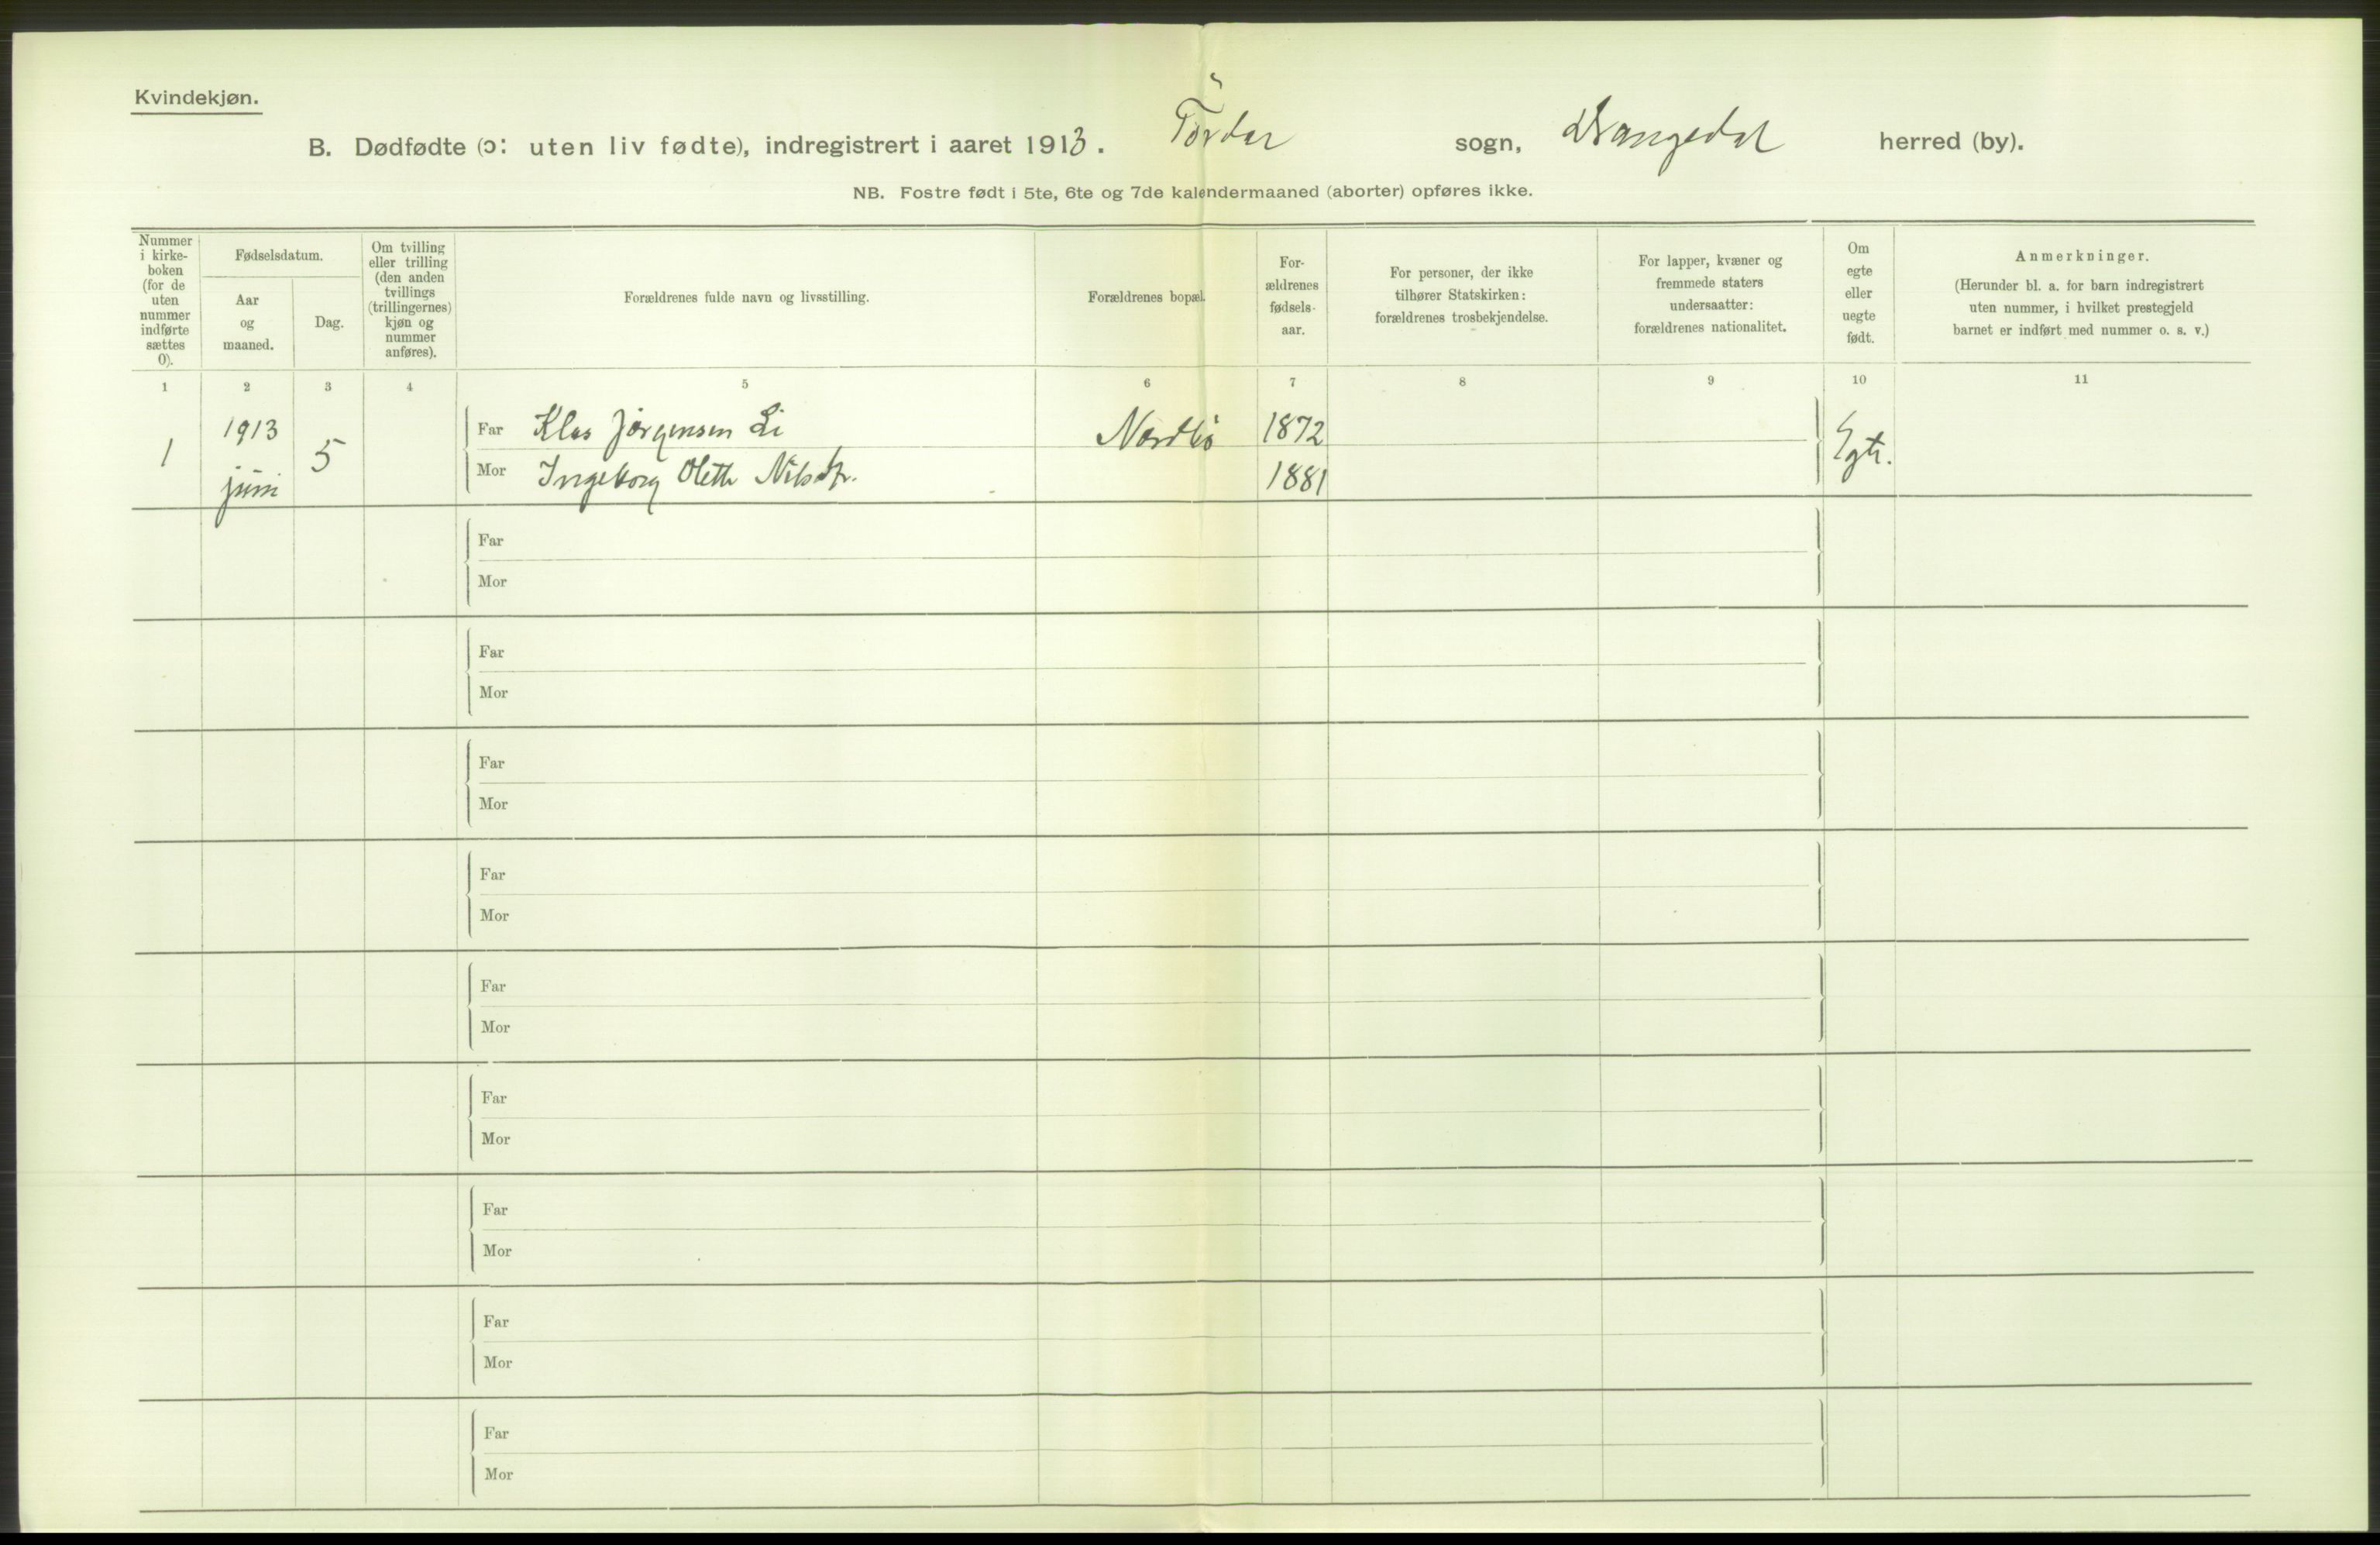 Kvindekjøn.
B. Dødfødte (ɔ: uten liv fødte), indregistrert i aaret 1913. Tørdar sogn, Drangedal herred (by).
NB. Fostre født i 5te, 6te og 7de kalendermaaned (aborter) opføres ikke.
Nummer
i kirke-
boken
(for de
uten
nummer
indførte
sættes
0).
Fødselsdatum.
Aar
og
maaned.
Dag.
Om tvilling
eller trilling
(den anden
tvillings
(trillingernes)
kjøn og
nummer
anføres).
Forældrenes fulde navn og livsstilling.
Forældrenes bopæl.
For-
ældrenes
fødsels-
aar.
For personer, der ikke
tilhører Statskirken:
forældrenes trosbekjendelse.
For lapper, kvæner og
fremmede staters
undersaatter:
forældrenes nationalitet.
Om
egte
eller
uegte
født.
Anmerkninger.
(Herunder bl. a. for barn indregistrert
uten nummer, i hvilket prestegjeld
barnet er indført med nummer o. s. v.)
1 2 3 4 5 6 7 8 9 10 11
1 1913 juni 5
Far Klas Jørgensen Li Nordbø 1872
Mor Ingeborg Oleth Nilsdtr. 1881
Egte.
Far
Mor
Far
Mor
Far
Mor
Far
Mor
Far
Mor
Far
Mor
Far
Mor
Far
Mor
Far
Mor